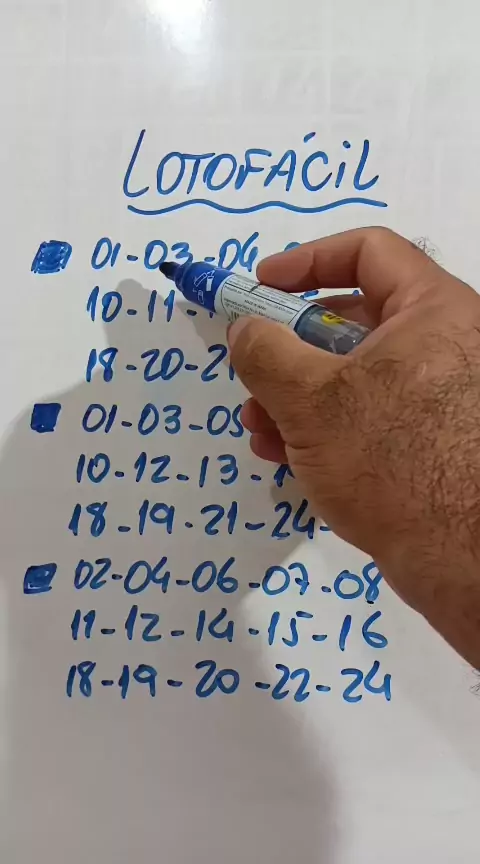 LOTOFÁCIL
01-03-04
10-11-
18-20-21
01-03-05
10-12-13-
18-19-21-24-
02-04-06-07-08
11-12-14-15-16
18-19-20-22-24